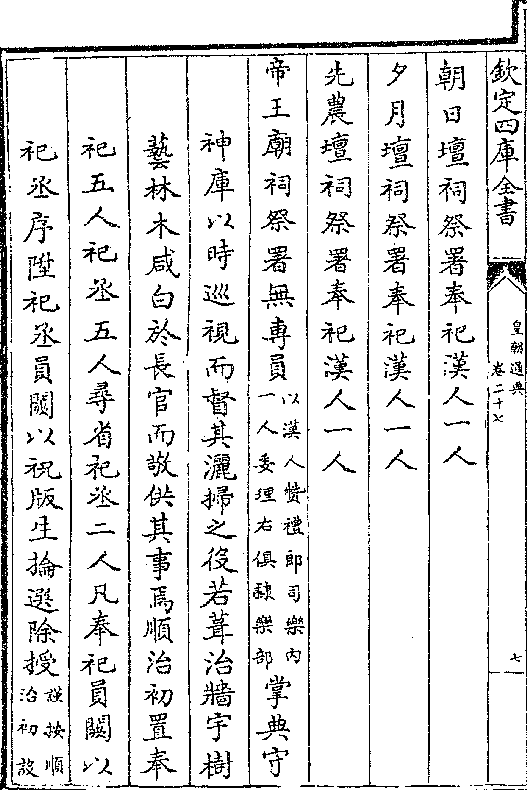 欽定四庫全書
皇朝通典
卷二十七
七
朝日壇祠祭署奉祀漢人一人
夕月壇祠祭署奉祀漢人一人
先農壇祠祭署奉祀漢人一人
帝王廟祠祭署無專員以漢人贊禮郎司樂內
一人委理右俱隸樂部掌典守
神庫以時巡視而督其灑掃之役若葺治牆宇樹
藝林木咸白於長官而敬供其事焉順治初置奉
祀五人祀丞五人尋省祀丞二人凡奉祀員闕以
祀丞序陞祀丞員闕以祝版生掄選除授謹按順
治初設